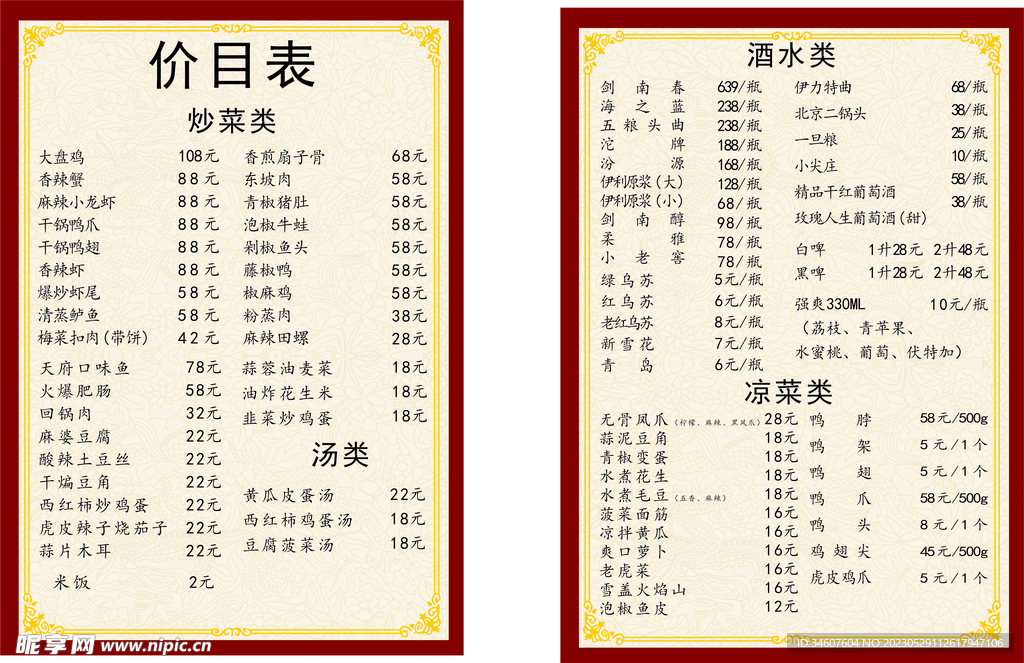 价目表
炒菜类
大盘鸡 108元
香辣蟹 88元
麻辣小龙虾 88元
干锅鸭爪 88元
干锅鸭翅 88元
香辣虾 88元
爆炒虾尾 58元
清蒸鲈鱼 58元
梅菜扣肉(带饼) 42元
天府口味鱼 78元
火爆肥肠 58元
回锅肉 32元
麻婆豆腐 22元
酸辣土豆丝 22元
干煸豆角 22元
西红柿炒鸡蛋 22元
虎皮辣子烧茄子 22元
蒜片木耳 22元
米饭 2元
香煎扇子骨 68元
东坡肉 58元
青椒猪肚 58元
泡椒牛蛙 58元
剁椒鱼头 58元
藤椒鸭 58元
椒麻鸡 58元
粉蒸肉 38元
麻辣田螺 28元
蒜蓉油麦菜 18元
油炸花生米 18元
韭菜炒鸡蛋 18元
汤类
黄瓜皮蛋汤 22元
西红柿鸡蛋汤 18元
豆腐菠菜汤 18元
昵享网 www.nipic.cn
酒水类
剑南春 639/瓶
海之蓝 238/瓶
五粮头曲 238/瓶
沱牌 188/瓶
汾源 168/瓶
伊利原浆(大) 128/瓶
伊利原浆(小) 68/瓶
剑南醇 98/瓶
柔雅 78/瓶
小老窖 78/瓶
绿乌苏 5元/瓶
红乌苏 6元/瓶
老红乌苏 8元/瓶
新雪花 7元/瓶
青岛 6元/瓶
伊力特曲 68/瓶
北京二锅头 38/瓶
一旦粮 25/瓶
小尖庄 10/瓶
精品干红葡萄酒 58/瓶
玫瑰人生葡萄酒(甜) 38/瓶
白啤 1升28元 2升48元
黑啤 1升28元 2升48元
强爽330ML 10元/瓶
（荔枝、青苹果、
水蜜桃、葡萄、伏特加）
凉菜类
无骨凤爪(柠檬、麻辣、黑凤爪) 28元
蒜泥豆角 18元
青椒变蛋 18元
水煮花生 18元
水煮毛豆(五香、麻辣) 18元
菠菜面筋 16元
凉拌黄瓜 16元
爽口萝卜 16元
老虎菜 16元
雪盖火焰山 16元
泡椒鱼皮 12元
鸭脖 58元/500g
鸭架 5元/1个
鸭翅 5元/1个
鸭爪 58元/500g
鸭头 8元/1个
鸡翅尖 45元/500g
虎皮鸡爪 5元/1个
ID:34607604 NO:20230529112617947106